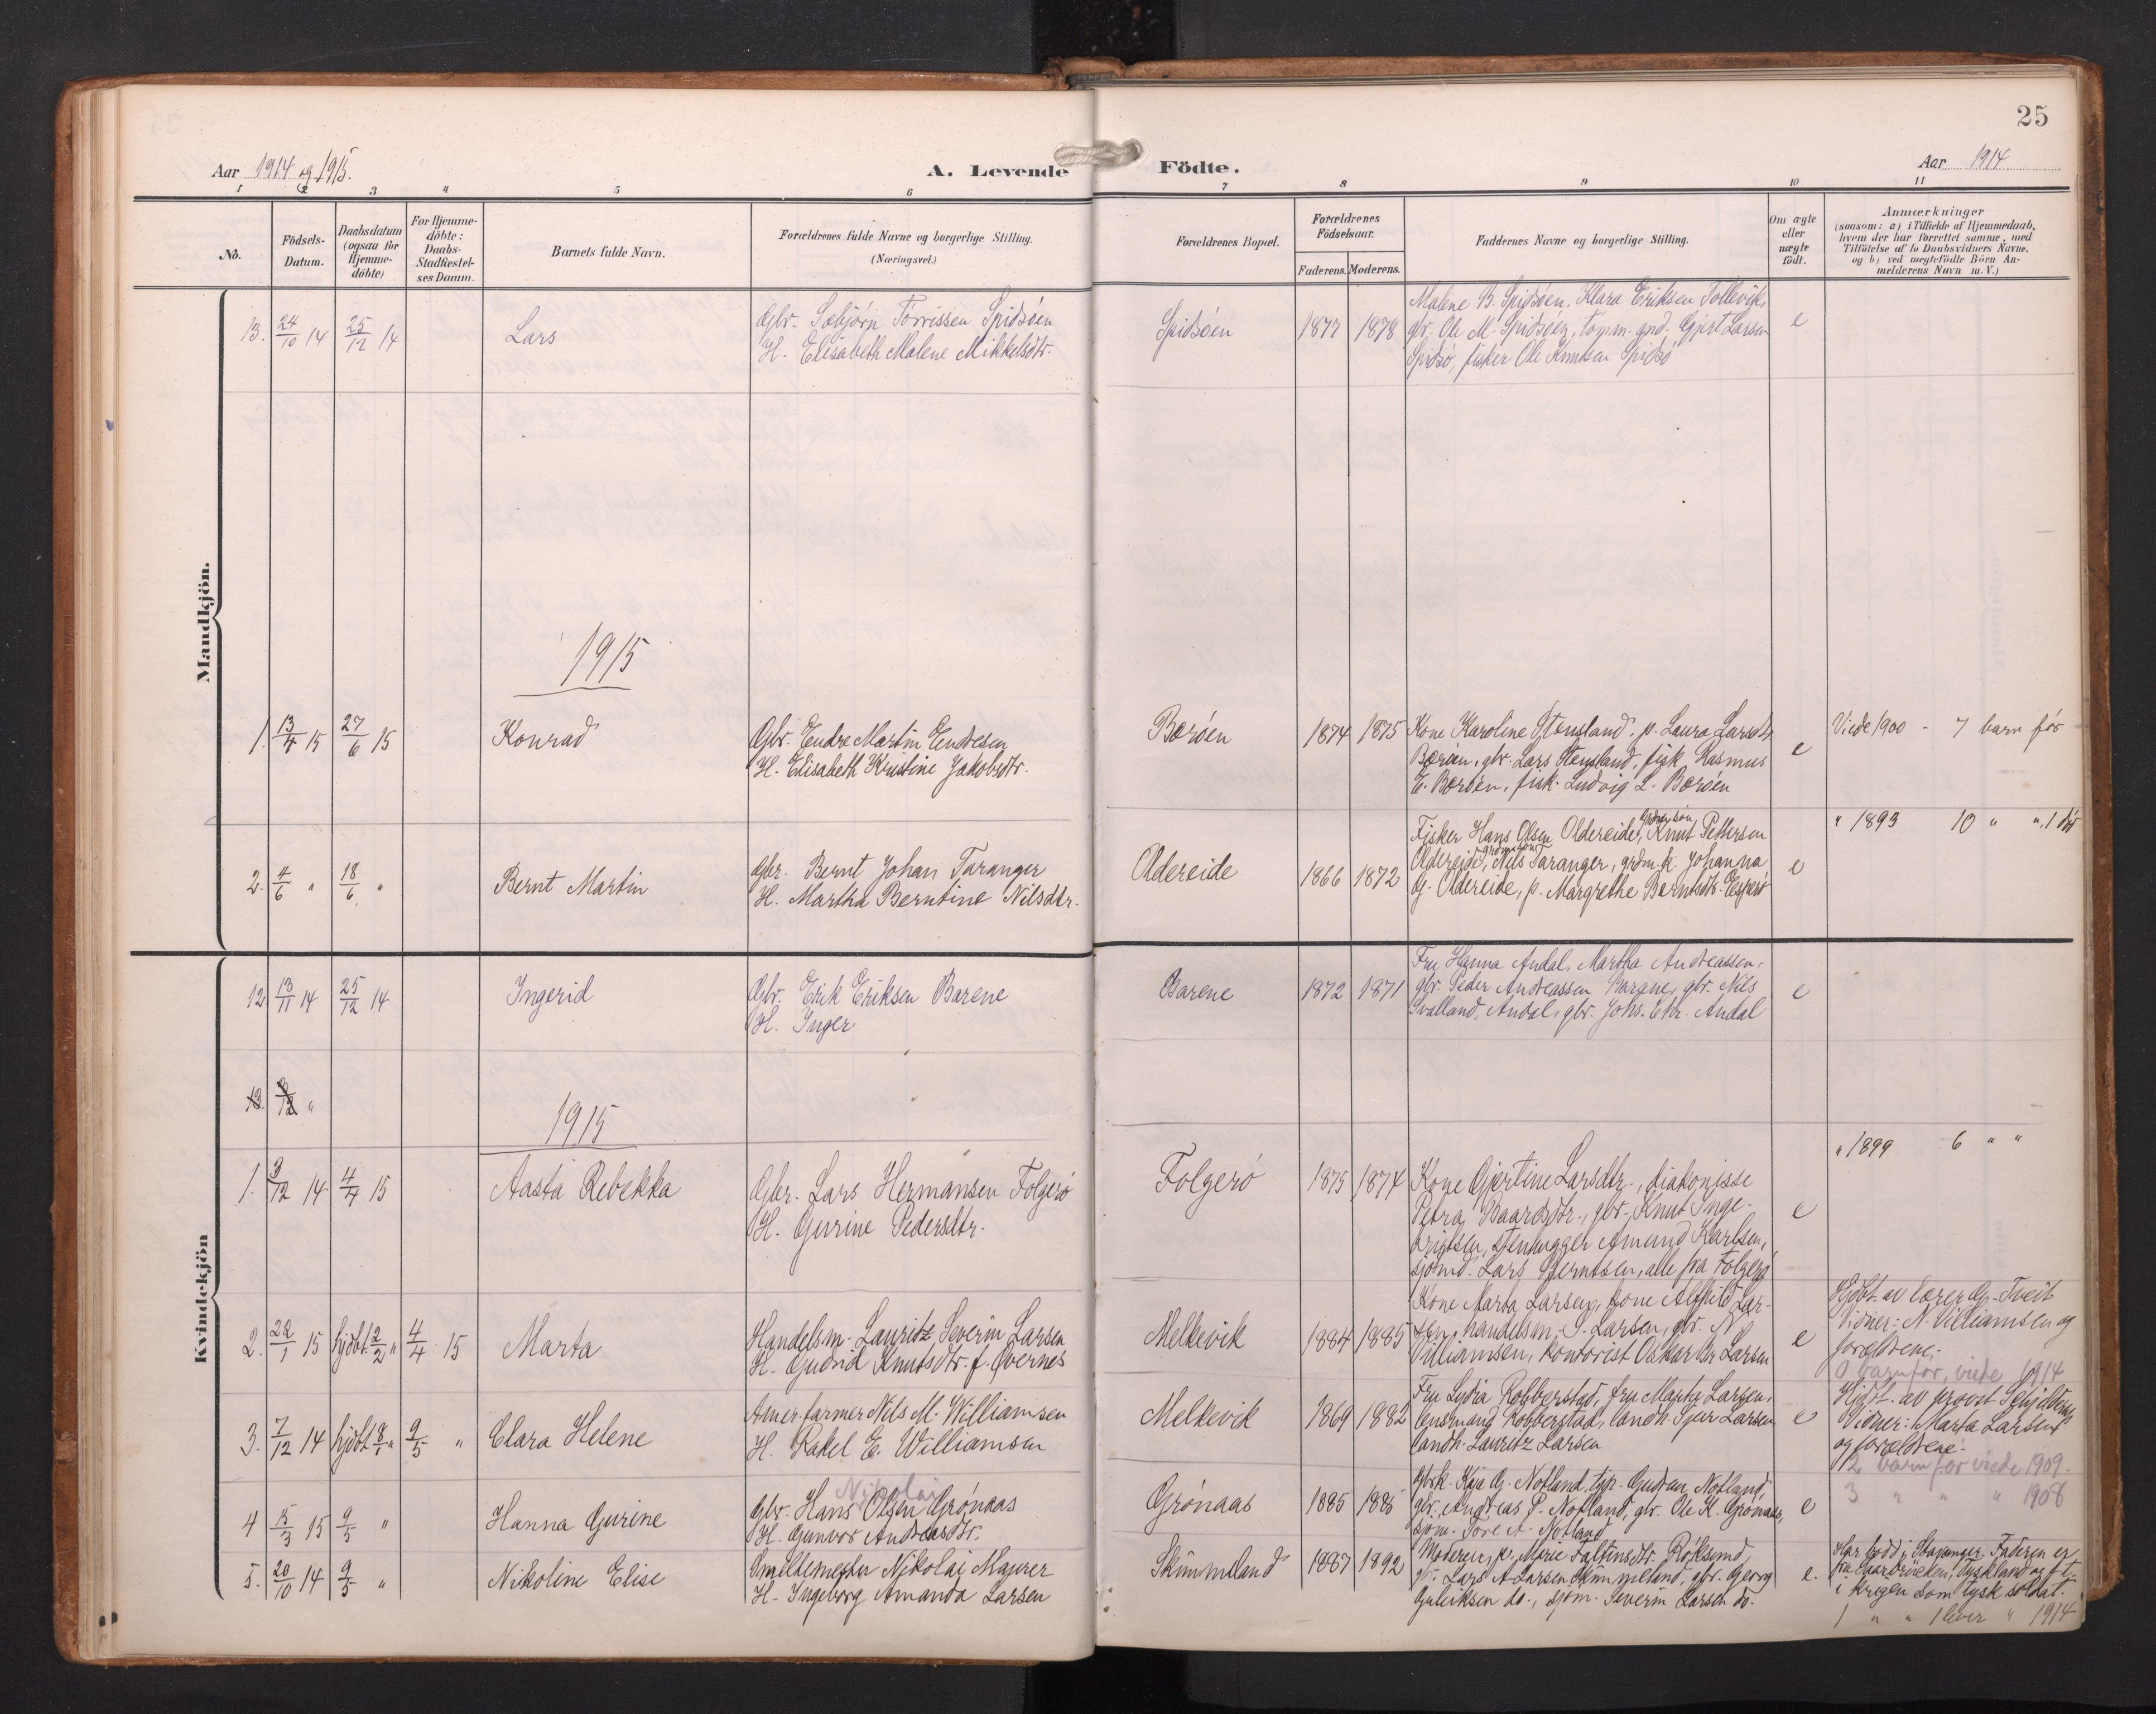 25
Aar 1914 og 1915.
A. Levende Födte.
Aar 1914
1 2 3 4 5 6 7 8 9 10 11
No.
Födsels-
Datum.
Daabsdatum
(ogsaa for
Hjemme-
döbte)
For Hjemme-
döbte:
Daabs-
Stadfestel-
ses Datum.
Barnets fulde Navn.
Forældrenes fulde Navne og borgerlige Stilling.
(Næringsvei.)
Forældrenes Bopæl.
Forældrenes
Födselsaar.
Faderens. Moderens.
Faddernes Navne og borgerlige Stilling.
Om ægte
eller
uægte
födt.
Anmærkninger
(saasom: a) i Tilfælde af Hjemmedaab,
hvem der har forrettet samme, med
Tilföielse af to Daabsvidners Navne.
og b) ved uægtefödte Börn An-
melderens Navn m. V.)
Mandkjön.
13. 24/10 14 25/12 14 Lars
Gbr. Sebjörn Torrissen Spidsöen
H. Elisabeth Malene Mikkelsdtr.
Spidsöen 1877 1878
Malene B. Spidsöen, Klara Eriksen Tollevik,
gbr. Ole M. Spidsöen, tömm. gnd. Gjert Larsen
Spidsö, fisker Ole Knutsen Spidsö
e
1915
1. 13/4 15 27/6 15 Konrad
Gbr. Endre Martin Endresen
H. Elisabeth Kristine Jakobsdtr.
Böröen 1874 1875
Kone Karoline Stensland, p. Laura Larsdtr
Böröen, gbr. Lars Stensland, fisk. Rasmus
E. Böröen, fisk. Ludvig L. Böröen
e
Viede 1900 - 7 barn för
2. 4/6 " 18/6 " Bernt Martin
Gbr. Bernt Johan Taranger
H. Martha Berntine Nilsdtr.
Oldereide 1866 1872
Fisker Hans Olsen Oldereide, Knut Pettersen
Oldereide, Nils Taranger, grdm.k. Johanna
G. Oldereide, p. Margrethe Berntsdtr.
e
" 1893 10 " ", 1 död
Kvindekjön
12. 13/11 14 25/12 14 Ingerid
Gbr. Erik Eriksen Barene
H. Inger
Barene 1872 1871
Fru Hanna Andal, Martha Andreassen,
gbr. Peder Andreassen Barene, gbr. Nils
Svalland, Andal, gbr. Johs. Chr. Andal
e
13. 3/12 "
1915
1. 3/12 14 4/4 15 Aasta Rebekka
Gbr. Lars Hermansen Folgerö
H. Gurine Pedersdtr.
Folgerö 1875 1874
Kone Gjertine Larsdtr., diakonisse
Petra Baardsdtr., gbr. Knut Inge-
brigtsen, stenhugger Amund Karlsen,
sjömd. Lars Berntsen, alle fra Folgerö
e
" 1899 6 " "
2. 22/1 15 hjdbt. 2/2 " 4/4 15 Marta
Handelsm. Lauritz Severin Larsen
H. Gudrid Knutsdtr. f. Övernes
Melkevik 1884 1885
Kone Marta Larsen, kone Alfhild Lar-
sen, handelsm. S. Larsen, gbr. N.
Villiamsen, kontorist Oskar Chr. Larsen
e
Hjdbt. av lærer G. Tveit
Vidner: N. Villiamsen og
forældrene.
0 barn för, viede 1914
3. 7/12 14 hjdbt 8/1 " 9/5 " Clara Helene
Amer. farmer Nils M. Williamsen
H. Rakel E. Williamsen
Melkevik 1869 1882
Fru Lydia Robberstad, fru Marta Larsen,
lensmand Robberstad, landh. Sjur Larsen
landh. Lauritz Larsen
e
Hjdbt. av provst Schjelderup
Vidner: Marta Larsen
og forældrene.
2 barn för viede 1909.
4 15/3 15 9/5 " Hanna Gurine
Nikolai
Gbr. Hans Olsen Grönaas
H. Gunvor Andreasdtr.
Grönaas 1885 1886
Gbrk. Kaja G. Notland, tjp. Gudrun Notland,
gbr. Andreas P. Notland, gbr. Ole K. Grönaas,
sjöm. Tore A. Notland
e
3 " " " 1908
5. 20/10 14 9/5 " Nikoline Elise
Smeltemester Nikolai Maurer
H. Ingeborg Amanda Larsen
Skimmeland 1887 1892
Moderen, p. Marie Faltinsdtr. Röksund,
gbr. Lars A. Larsen Skimmeland, gbr. Georg
Guleiksen do., sjöm. Severin Larsen do.
e.
Har bodd i Stavanger. Faderen er
fra Saarbrücken, Tyskland og f.t.
i krigen som tysk soldat.
1 " " 1 lever " 1914